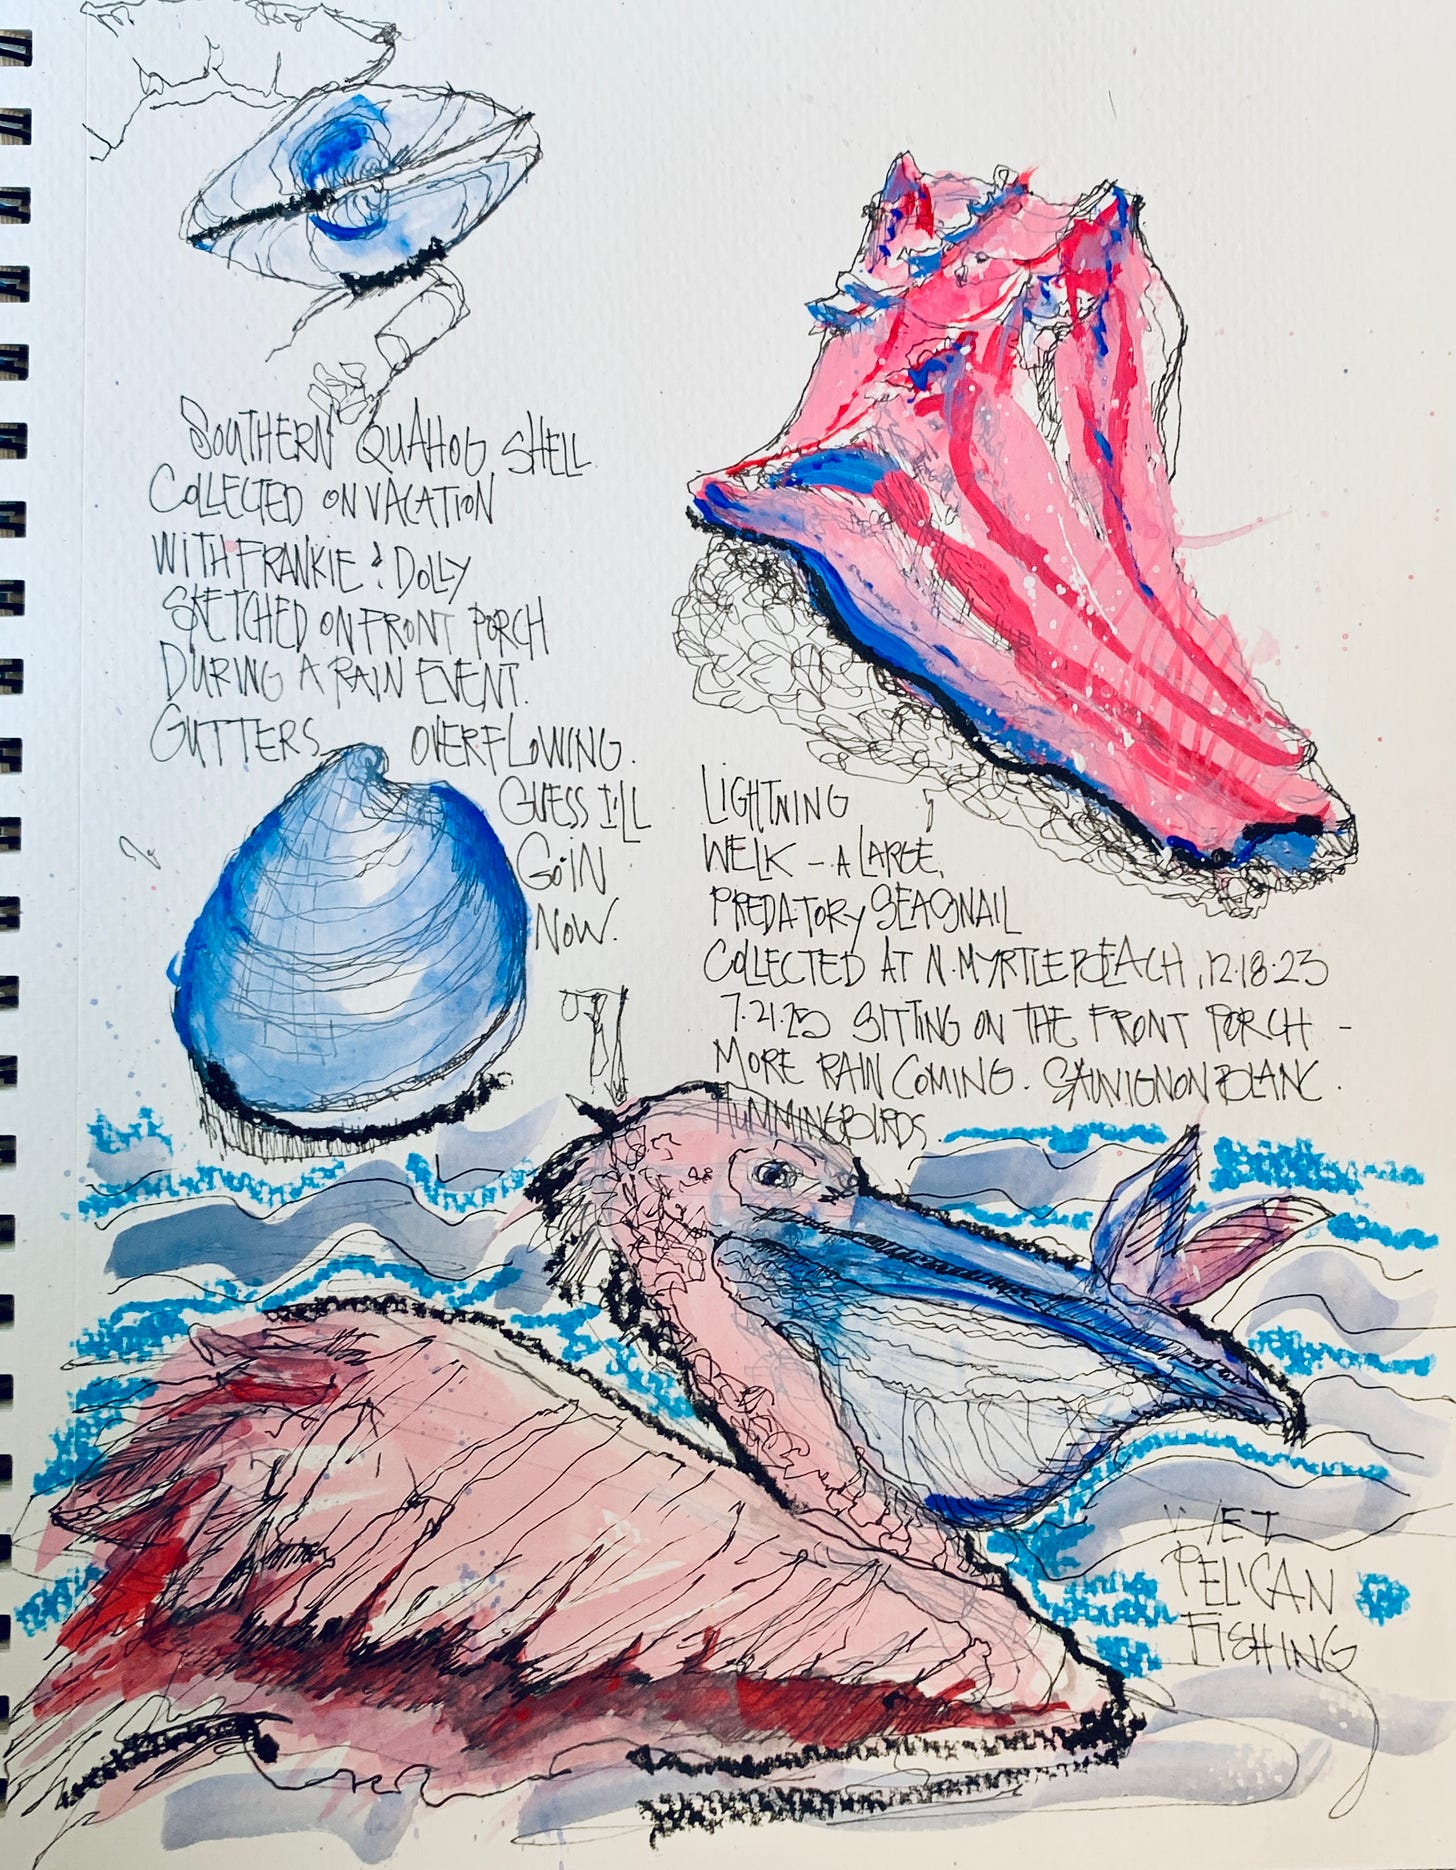 SOUTHERN QUAHOG SHELL
COLLECTED ON VACATION
WITH FRANKIE & DOLLY
SKETCHED ON FRONT PORCH
DURING A RAIN EVENT.
GUTTERS OVERFLOWING.
GUESS I'LL
GO IN
NOW.
LIGHTNING
WELK - A LARGE,
PREDATORY SEASNAIL
COLLECTED AT N. MYRTLE BEACH, 12.18.23
7.21.25 SITTING ON THE FRONT PORCH -
MORE RAIN COMING. SAUVIGNON BLANC.
HUMMINGBIRDS
WET
PELICAN
FISHING